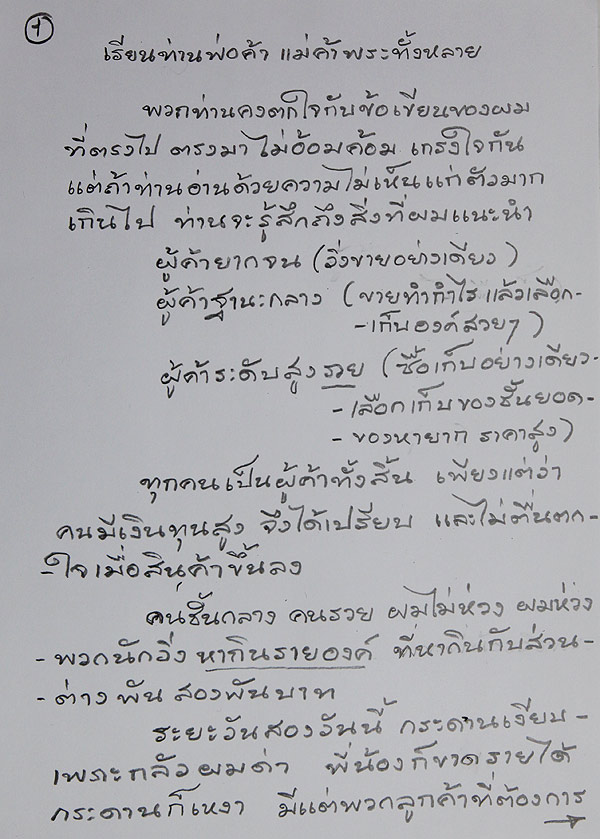 1
เรียนท่านพ่อค้า แม่ค้าพระทั้งหลาย
พวกท่านคงตกใจกับข้อเขียนของผม
ที่ตรงไป ตรงมา ไม่อ้อมค้อม เกรงใจกัน
แต่ถ้าท่านอ่านด้วยความไม่เห็นแก่ตัวมาก
เกินไป ท่านจะรู้สึกถึงสิ่งที่ผมแนะนำ
ผู้ค้ายากจน (วิ่งขายอย่างเดียว)
ผู้ค้าฐานะกลาง (ขายทำกำไร แล้วเลือก-
-เก็บองค์สวยๆ)
ผู้ค้าระดับสูง รวย (ซื้อเก็บอย่างเดียว-
-เลือกเก็บของชั้นยอด-
-ของหายาก ราคาสูง)
ทุกคนเป็นผู้ค้าทั้งสิ้น เพียงแต่ว่า
คนมีเงินทุนสูง จึงได้เปรียบ และไม่ตื่นตก-
-ใจเมื่อสินค้าขึ้นลง
คนชั้นกลาง คนรวย ผมไม่ห่วง ผมห่วง
-พวกนักวิ่ง หากินรายองค์ ที่หากินกับส่วน-
-ต่าง พัน สองพันบาท
ระยะวันสองวันนี้ กระดานเงียบ-
เพราะกลัวผมด่า พี่น้องก็ขาดรายได้
กระดานก็เหงา มีแต่พวกลูกค้าที่ต้องการ
→